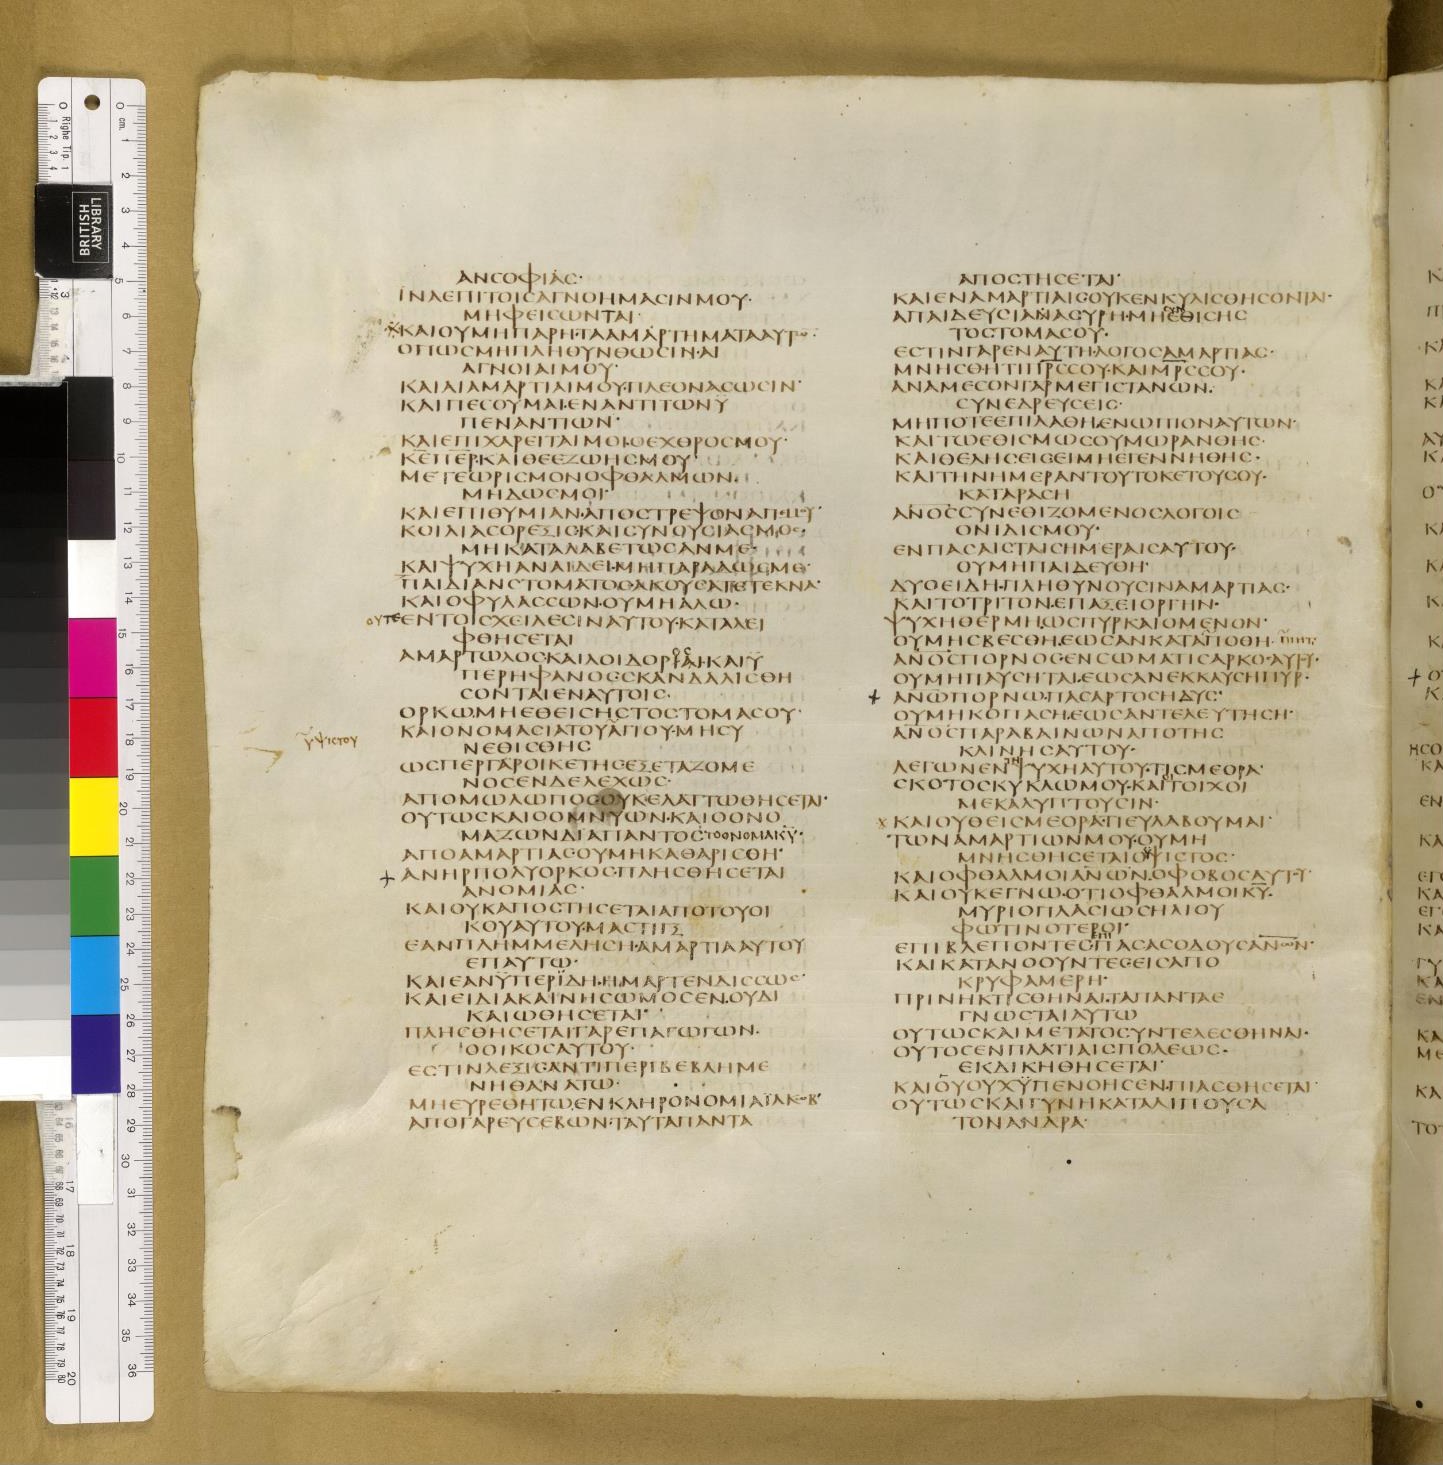 ΑΝϹΟΦΙΑϹ·
ΙΝΑΕΠΙΤΟΙϹΑΓΝΟΗΜΑϹΙΝΜΟΥ·
ΜΗΦΕΙϹΩΝΤΑΙ·
ΚΑΙΟΥΜΗΠΑΡΗ·ΤΑΑΜΑΡΤΗΜΑΤΑΑΥΤΩ
ΟΠΩϹΜΗΠΛΗΘΥΝΘΩϹΙΝ·ΑΙ
ΑΓΝΟΙΑΙΜΟΥ·
ΚΑΙΑΙΑΜΑΡΤΙΑΙΜΟΥΠΛΕΟΝΑϹΩϹΙΝ·
ΚΑΙΠΕϹΟΥΜΑΙ·ΕΝΑΝΤΙΤΩΝΥ
ΠΕΝΑΝΤΙΩΝ·
ΚΑΙΕΠΙΧΑΡΕΙΤΑΙΜΟΙ·ΟΕΧΘΡΟϹΜΟΥ·
ΚΕΠΕΡ·ΚΑΙΘΕΕΖΩΗϹΜΟΥ
ΜΕΤΕΩΡΙϹΜΟΝΟΦΘΑΛΜΩΝ·
ΜΗΔΩϹΜΟΙ·
ΚΑΙΕΠΙΘΥΜΙΑΝ·ΑΠΟϹΤΡΕΨΟΝΑΠ
ΚΟΙΛΙΑϹΟΡΕΞΙϹ·ΚΑΙϹΥΝΟΥϹΙΑϹΜΟϹ
ΜΗΚΑΤΑΛΑΒΕΤΩϹΑΝΜΕ·
ΚΑΙΨΥΧΗΑΝΑΙΔΕΙ·ΜΗΠΑΡΑΔΩϹΜΕ
ΠΑΙΔΙΑΝϹΤΟΜΑΤΟϹ·ΑΚΟΥϹΑΤΕΤΕΚΝΑ·
ΚΑΙΟΦΥΛΑϹϹΩΝ·ΟΥΜΗΑΛΩ·
ΟΥΤΕΕΝΤΟΙϹΧΕΙΛΕϹΙΝΑΥΤΟΥ·ΚΑΤΑΛΕΙ
ΦΘΗϹΕΤΑΙ
ΑΜΑΡΤΩΛΟϹΚΑΙΛΟΙΔΟΡ ΚΑΙΥ
ΠΕΡΗΦΑΝΟϹϹΚΑΝΔΑΛΙϹΘΗ
ϹΟΝΤΑΙΕΝΑΥΤΟΙϹ·
ΟΡΚΩΜΗΕΘΕΙϹΗϹΤΟϹΤΟΜΑϹΟΥ·
ΚΑΙΟΝΟΜΑϹΙΑΤΟΥΑΓΙΟΥ·ΜΗϹΥ
ΥΨΙϹΤΟΥ
ΝΕΘΙϹΘΗϹ
ΩϹΠΕΡΓΑΡΟΙΚΕΤΗϹΕΞΕΤΑΖΟΜΕ
ΝΟϹΕΝΔΕΛΕΧΩϹ·
ΑΠΟΜΩΛΩΠΟϹΟΥΚΕΛΑΤΤΩΘΗϹΕΤΑΙ·
ΟΥΤΩϹΚΑΙΟΟΜΝΥΩΝ·ΚΑΙΟΟΝΟ
ΜΑΖΩΝΔΙΑΠΑΝΤΟϹΤΟΟΝΟΜΑΚΥ·
ΑΠΟΑΜΑΡΤΙΑϹΟΥΜΗΚΑΘΑΡΙϹΘΗ·
ΑΝΗΡΠΟΛΥΟΡΚΟϹ·ΠΛΗϹΘΗϹΕΤΑΙ
ΑΝΟΜΙΑϹ·
ΚΑΙΟΥΚΑΠΟϹΤΗϹΕΤΑΙΑΠΟΤΟΥΟΙ
ΚΟΥΑΥΤΟΥΜΑϹΤΙΓΞ
ΕΑΝΠΛΗΜΜΕΛΗϹΗ·ΑΜΑΡΤΙΑΑΥΤΟΥ
ΕΠΑΥΤΩ·
ΚΑΙΕΑΝΥΠΕΡΪΔΗ·ΗΜΑΡΤΕΝΔΙϹϹΩϹ·
ΚΑΙΕΙΔΙΑΚΑΙΝΗϹΩΜΟϹΕΝ·ΟΥΔΙ
ΚΑΙΩΘΗϹΕΤΑΙ·
ΠΛΗϹΘΗϹΕΤΑΙΓΑΡΕΠΑΓΩΓΩΝ·
ΟΟΙΚΟϹΑΥΤΟΥ·
ΕϹΤΙΝΛΕΞΙϹΑΝΤΙΠΕΡΙΒΕΒΛΗΜΕ
ΝΗΘΑΝΑΤΩ·
ΜΗΕΥΡΕΘΗΤΩ·ΕΝΚΛΗΡΟΝΟΜΙΑΪΑΚΩΒ·
ΑΠΟΓΑΡΕΥϹΕΒΩΝ·ΤΑΥΤΑΠΑΝΤΑ
ΑΠΟϹΤΗϹΕΤΑΙ·
ΚΑΙΕΝΑΜΑΡΤΙΑΙϹΟΥΚΕΝΚΥΛΙϹΘΗϹΟΝΤΑΙ·
ΑΠΑΙΔΕΥϹΙΑΝΑϹΥΡΗ·ΜΗ ΕΘΙϹΗϹ
ΤΟϹΤΟΜΑϹΟΥ·
ΕϹΤΙΝΓΑΡΕΝΑΥΤΗ·ΛΟΓΟϹΑΜΑΡΤΙΑϹ·
ΜΝΗϹΘΗΤΙΠΡϹϹΟΥ·ΚΑΙΜΡϹϹΟΥ·
ΑΝΑΜΕϹΟΝΓΑΡΜΕΓΙϹΤΑΝΩΝ·
ϹΥΝΕΔΡΕΥϹΕΙϹ·
ΜΗΠΟΤΕΕΠΙΛΑΘΗ·ΕΝΩΠΙΟΝΑΥΤΩΝ·
ΚΑΙΤΩΕΘΙϹΜΩϹΟΥΜΩΡΑΝΘΗϹ·
ΚΑΙΘΕΛΗϹΕΙϹΕΙΜΗΕΓΕΝΝΗΘΗϹ·
ΚΑΙΤΗΝΗΜΕΡΑΝΤΟΥΤΟΚΕΤΟΥϹΟΥ·
ΚΑΤΑΡΑϹΗ
ΑΝΟϹϹΥΝΕΘΙΖΟΜΕΝΟϹΛΟΓΟΙϹ
ΟΝΙΔΙϹΜΟΥ·
ΕΝΠΑϹΑΙϹΤΑΙϹΗΜΕΡΑΙϹΑΥΤΟΥ·
ΟΥΜΗΠΑΙΔΕΥΘΗ·
ΔΥΟΕΙΔΗ·ΠΛΗΘΥΝΟΥϹΙΝΑΜΑΡΤΙΑϹ·
ΚΑΙΤΟΤΡΙΤΟΝ·ΕΠΑΞΕΙΟΡΓΗΝ·
ΨΥΧΗΘΕΡΜΗ·ΩϹΠΥΡΚΑΙΟΜΕΝΟΝ·
ΟΥΜΗϹΒΕϹΘΗ·ΕΩϹΑΝΚΑΤΑΠΟΘΗ·
ΑΝΟϹΠΟΡΝΟϹΕΝϹΩΜΑΤΙϹΑΡΚΟ·ΑΥΤΥ·
ΟΥΜΗΠΑΥϹΗΤΑΙ·ΕΩϹΑΝΕΚΚΑΥϹΗΠΥΡ·
ΑΝΩΠΟΡΝΩ·ΠΑϹΑΡΤΟϹΗΔΥϹ·
ΟΥΜΗΚΟΠΑϹΗ·ΕΩϹΑΝΤΕΛΕΥΤΗϹΗ·
ΑΝΟϹΠΑΡΑΒΑΙΝΩΝΑΠΟΤΗϹ
ΚΛΙΝΗϹΑΥΤΟΥ·
ΛΕΓΩΝΕΝΤΗΨΥΧΗΑΥΤΟΥ·ΤΙϹΜΕΟΡΑ·
ϹΚΟΤΟϹΚΥΚΛΩΜΟΥ·ΚΑΙΟΙΤΟΙΧΟΙ
ΜΕΚΑΛΥΠΤΟΥϹΙΝ·
ΚΑΙΟΥΘΕΙϹΜΕΟΡΑ·ΤΙΕΥΛΑΒΟΥΜΑΙ·
ΤΩΝΑΜΑΡΤΙΩΝΜΟΥ·ΟΥΜΗ
ΜΝΗϹΘΗϹΕΤΑΙΟΫΨΙϹΤΟϹ·
ΚΑΙΟΦΘΑΛΜΟΙΑΝΩΝ·ΟΦΟΒΟϹΑΥΤΥ·
ΚΑΙΟΥΚΕΓΝΩ·ΟΤΙΟΦΘΑΛΜΟΙΚΥ·
ΜΥΡΙΟΠΛΑϹΙΩϹΗΛΙΟΥ
ΦΩΤΙΝΟΤΕΡΟΙ·
ΕΠΙΒΛΕΠΟΝΤΕϹΠΑϹΑϹΟΔΟΥϹΑΝΩΝ·
ΚΑΙΚΑΤΑΝΟΟΥΝΤΕϹΕΙϹΑΠΟ
ΚΡΥΦΑΜΕΡΗ·
ΠΡΙΝΗΚΤΙϹΘΗΝΑΙ·ΤΑΠΑΝΤΑΕ
ΓΝΩϹΤΑΙΑΥΤΩ
ΟΥΤΩϹΚΑΙΜΕΤΑΤΟϹΥΝΤΕΛΕϹΘΗΝΑΙ·
ΟΥΤΟϹΕΝΠΛΑΤΙΑΙϹΠΟΛΕΩϹ·
ΕΚΔΙΚΗΘΗϹΕΤΑΙ·
ΚΑΙΟΥΟΥΧΫΠΕΝΟΗϹΕΝ·ΠΙΑϹΘΗϹΕΤΑΙ·
ΟΥΤΩϹΚΑΙΓΥΝΗΚΑΤΑΛΙΠΟΥϹΑ
ΤΟΝΑΝΔΡΑ·
BRITISH
LIBRARY